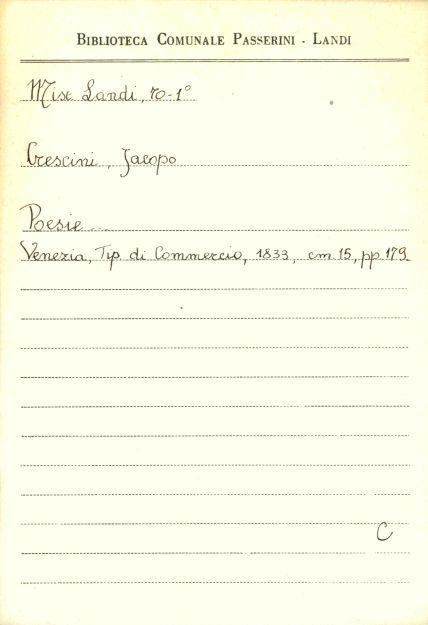 BIBLIOTECA COMUNALE PASSERINI - LANDI
Misc Landi, 70-1°
Crescini, Jacopo
Poesie...
Venezia, Tip. di Commercio, 1833, cm 15, pp 179
C